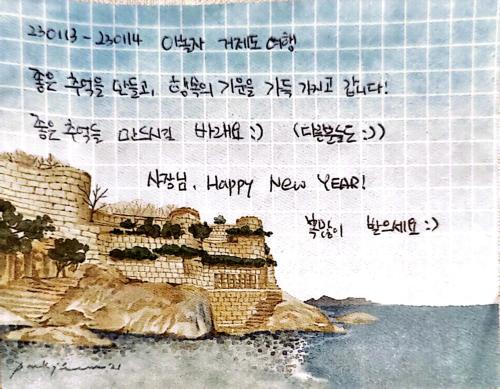 230113 - 230114 이놀자 거제도 여행
좋은 추억을 만들고, 행복의 기운을 가득 가지고 갑니다!
좋은 추억들 만드시길 바래요 :) (다른분들도 :))
사장님, Happy New YEAR!
복많이 받으세요 :)